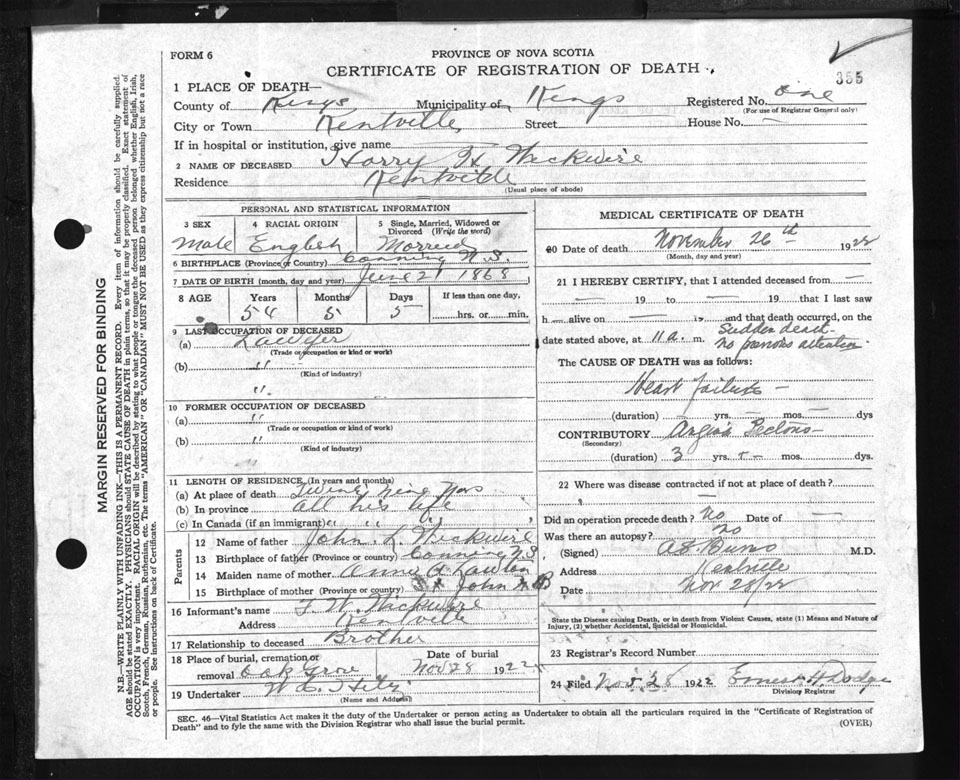 FORM 6
PROVINCE OF NOVA SCOTIA
CERTIFICATE OF REGISTRATION OF DEATH
355
1 PLACE OF DEATH—
County of Kings Municipality of Kings Registered No. One
(For use of Registrar General only)
City or Town Kentville Street House No. —
If in hospital or institution, give name
2 NAME OF DECEASED Harry H. Wickwire
Residence Kentville
(Usual place of abode)
PERSONAL AND STATISTICAL INFORMATION
3 SEX 4 RACIAL ORIGIN 5 Single, Married, Widowed or Divorced (Write the word)
Male English Married
6 BIRTHPLACE (Province or Country) Canning N.S.
7 DATE OF BIRTH (month, day and year) June 21 1868
8 AGE Years Months Days If less than one day,
54 5 5 hrs. or min.
9 LAST OCCUPATION OF DECEASED
(a) Lawyer
(Trade or occupation or kind or work)
(b) "
(Kind of industry)
"
10 FORMER OCCUPATION OF DECEASED
(a) "
(Trade or occupation or kind or work)
(b) "
(Kind of industry)
11 LENGTH OF RESIDENCE (In years and months)
(a) At place of death Twenty nine yrs
(b) In province all his life
(c) In Canada (if an immigrant) " " " "
Parents
12 Name of father John L. Wickwire
13 Birthplace of father (Province or country) Canning N.S.
14 Maiden name of mother Annie A. Lawton
15 Birthplace of mother (Province or country) St John N.B
16 Informant's name T. W. Wickwire
Address Kentville
17 Relationship to deceased Brother
18 Place of burial, cremation or removal Oak Grove
Date of burial Nov 28 1922
19 Undertaker
(Name and Address)
MEDICAL CERTIFICATE OF DEATH
20 Date of death November 26th 1922
(Month, day and year)
21 I HEREBY CERTIFY, that I attended deceased from —
— 19 to — 19 that I last saw
h — alive on — 19 and that death occurred, on the
date stated above, at 11 a. m. Sudden death
no attention
The CAUSE OF DEATH was as follows:
Heart failure —
(duration) — yrs. — mos. — dys
CONTRIBUTORY Angina Pectoris
(Secondary)
(duration) 3 yrs. — mos. dys.
22 Where was disease contracted if not at place of death?
Did an operation precede death? No Date of —
Was there an autopsy? No
(Signed) M.D.
Address Kentville
Date Nov 28/22
State the Disease causing Death, or in death from Violent Causes, state (1) Means and Nature of
Injury, (2) whether Accidental, Suicidal or Homicidal.
23 Registrar's Record Number
24 Filed Nov 28 1922 Ernest H. Dodge
Division Registrar
SEC. 46—Vital Statistics Act makes it the duty of the Undertaker or person acting as Undertaker to obtain all the particulars required in the "Certificate of Registration of
Death" and to fyle the same with the Division Registrar who shall issue the burial permit.
(OVER)
MARGIN RESERVED FOR BINDING
N.B.—WRITE PLAINLY WITH UNFADING INK—THIS IS A PERMANENT RECORD. Every item of information should be carefully supplied.
AGE should be stated EXACTLY. PHYSICIANS should STATE CAUSE OF DEATH in plain terms, so that it may be properly classified. Exact statement of
OCCUPATION is very important. RACIAL ORIGIN will be described by stating to what people or tongue the deceased person belonged whether English, Irish,
Scotch, French, German, Russian, Ruthenian, etc. The terms "AMERICAN" OR "CANADIAN" MUST NOT BE USED as they express citizenship but not a race
or people. See instructions on back of Certificate.